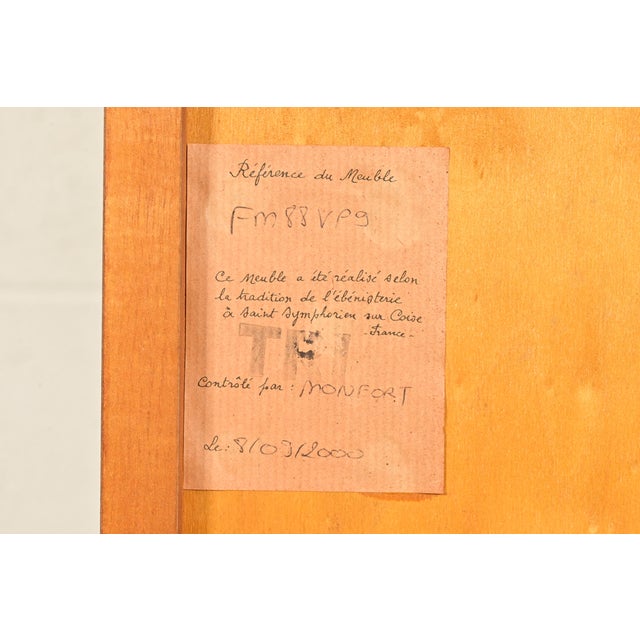 Référence du Meuble
FM88VP9
Ce Meuble a été réalisé selon
la tradition de l'ébénisterie
à Saint Symphorien sur Coise
-France-
Contrôlé par : MONFORT
Le : 8/03/2000